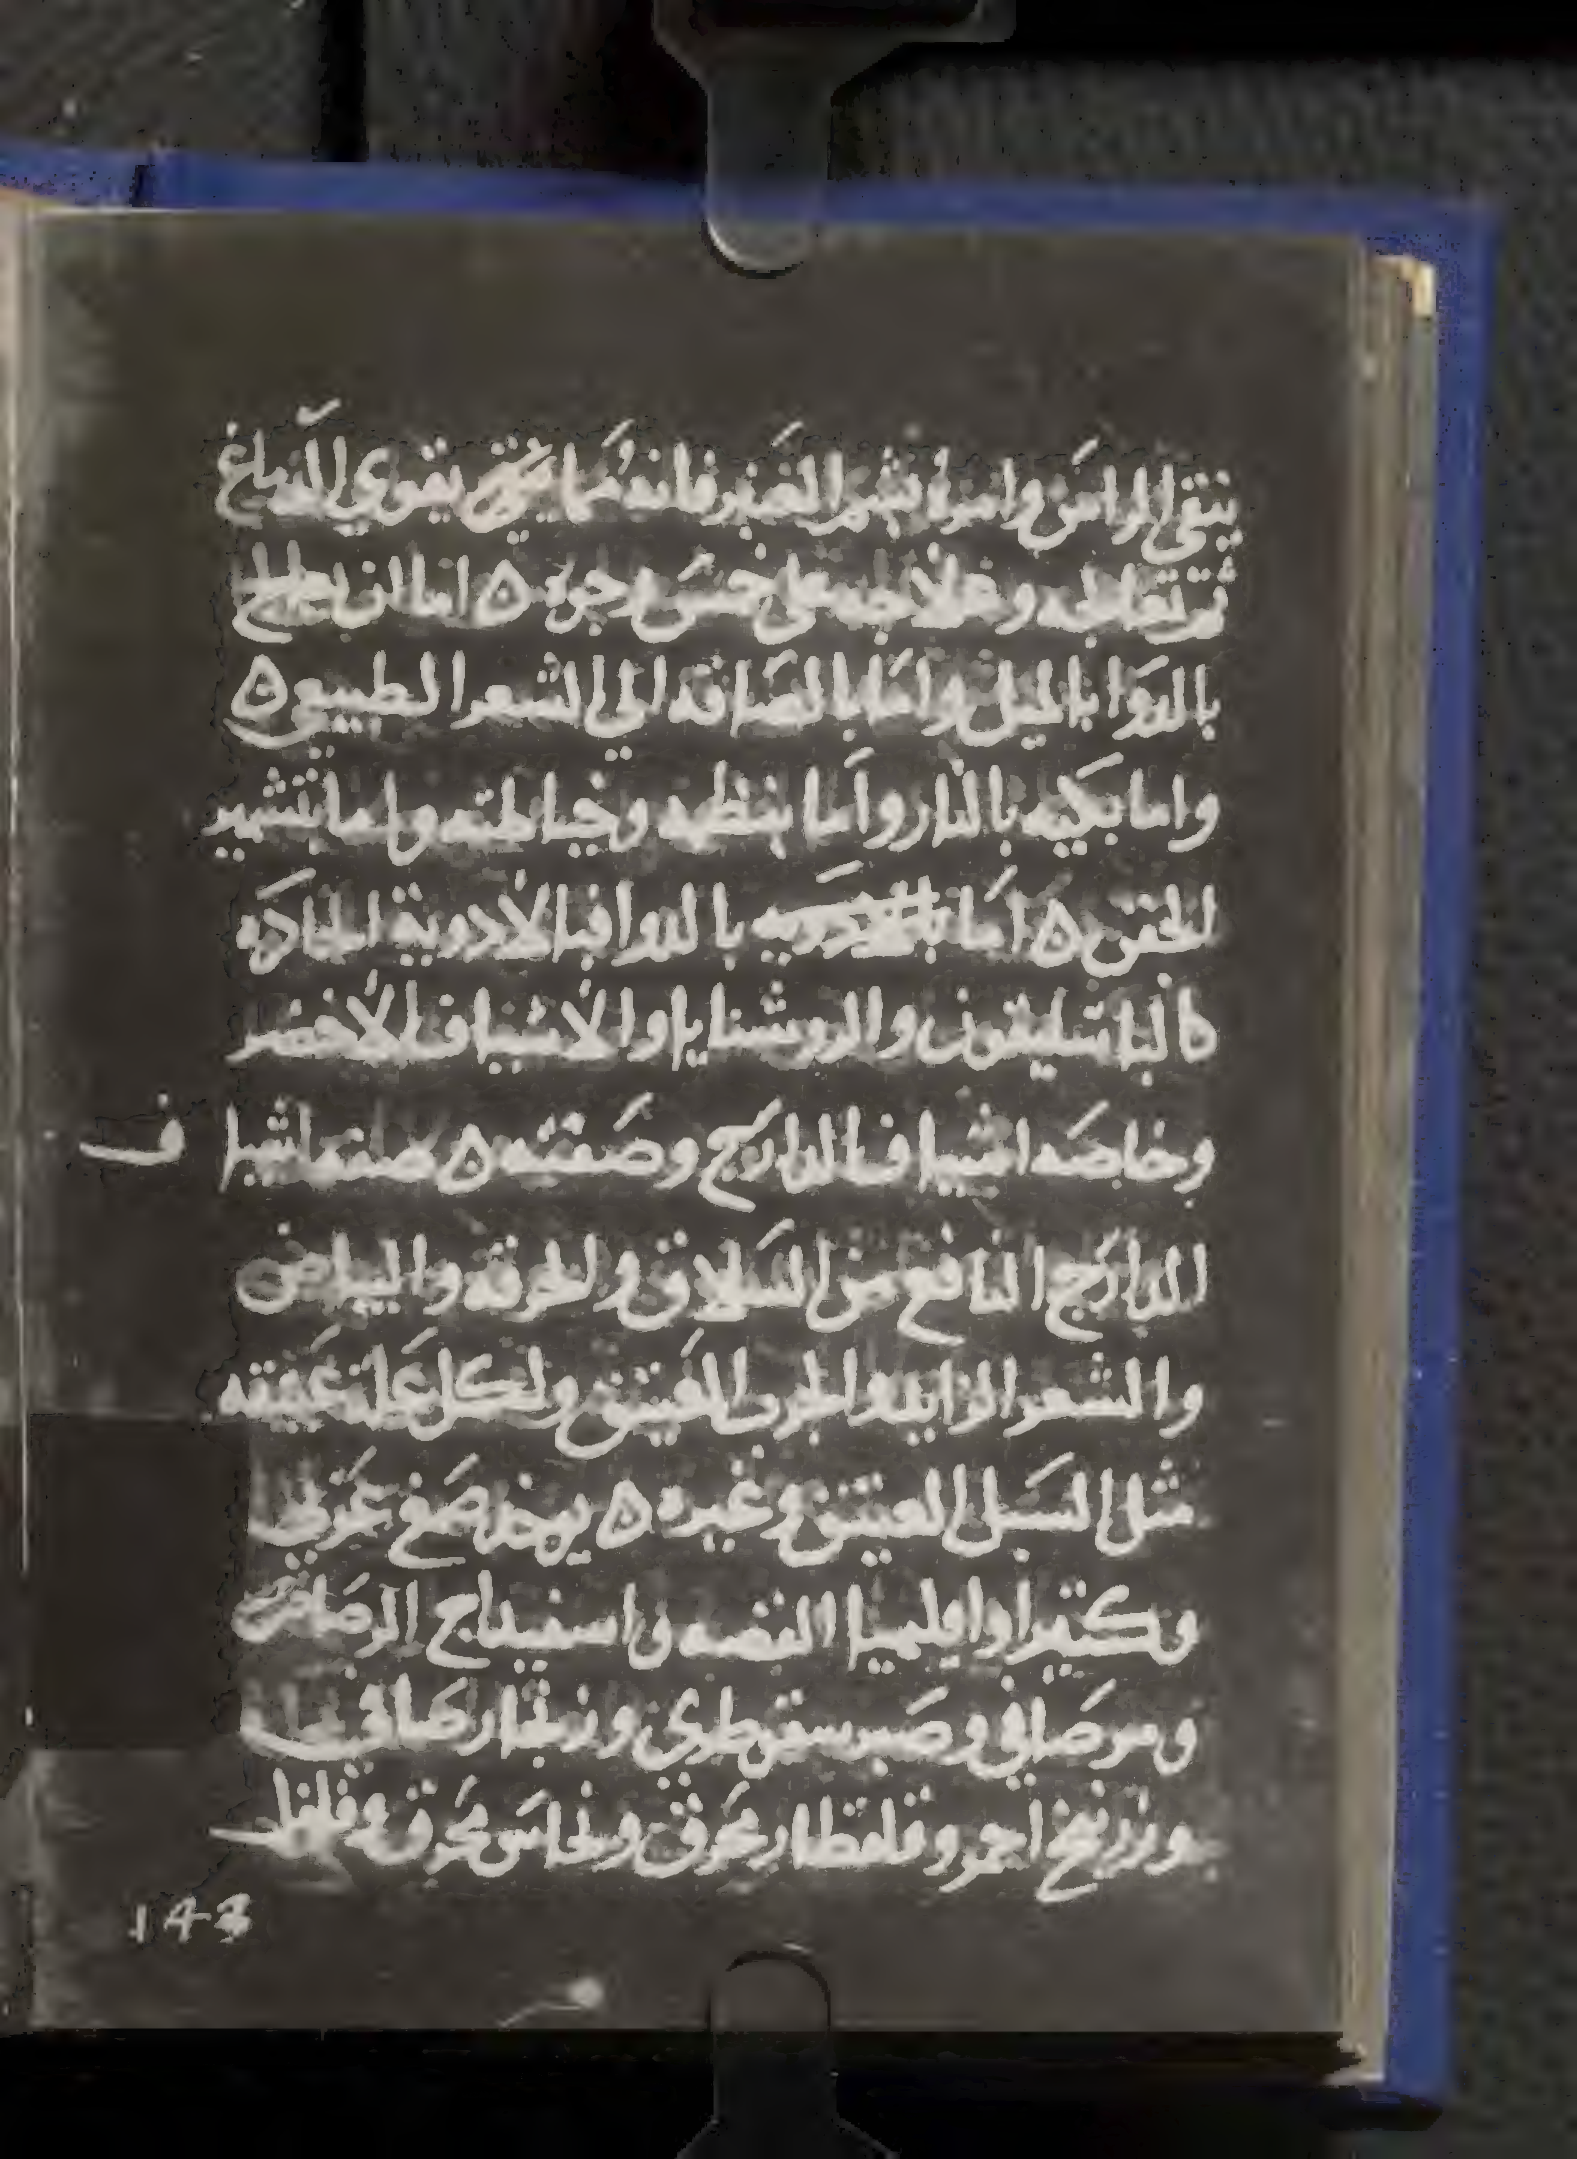 ينقي الراس وامره بشم العنبر فانه مما يقوي الدماغ
ثم تعالجه وعلاجه على خمس وجوه ٥ اما ان تعالج
بالدوا بالميل واما بالصاقه الي الشعر الطبيعي ٥
واما بكيه بالنار واما بنظمه وخياطته واما بتشمير
الجفن ٥ اما بالدوا فبالادوية الحاده
كالباسليقون والروشنايا والاشياف الاخضر
وخاصه اشياف الدارج وصفته ٥ صفة اشياف
الدارج النافع من السلاق والحرقه والبياض
والشعر الزايد والجرب العتيق ولكل علة عتيقه
مثل السبل العتيق وغيره ٥ يوخذ صمغ عربي
وكثيرا واقليميا الفضه واسفيداج الرصاص
ومر صافي وصبر سقطري وزنجار صافي
وزرنيخ احمر وقلقطار محرق ونحاس محرق
143